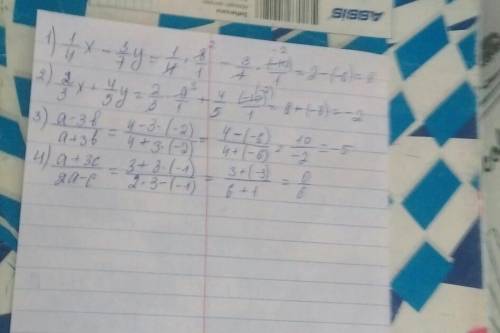 ASSIS
1) 1/4 x - 3/7 y = 1/4 · 8/1 - 3/7 · (-14)/1 = 2 - (-6) = 8
2) 2/3 x + 4/5 y = 2/3 · /1 + 4/5 · /1 = 8 + (-8) = -2
3) a-3b/a+3b = 4-3·(-2)/4+3·(-2) = 4-(-6)/4+(-6) = 10/-2 = -5
4) a+3c/2a-c = 3+3·(-1)/2·3-(-1) = 3+(-3)/6+1 = 0/6